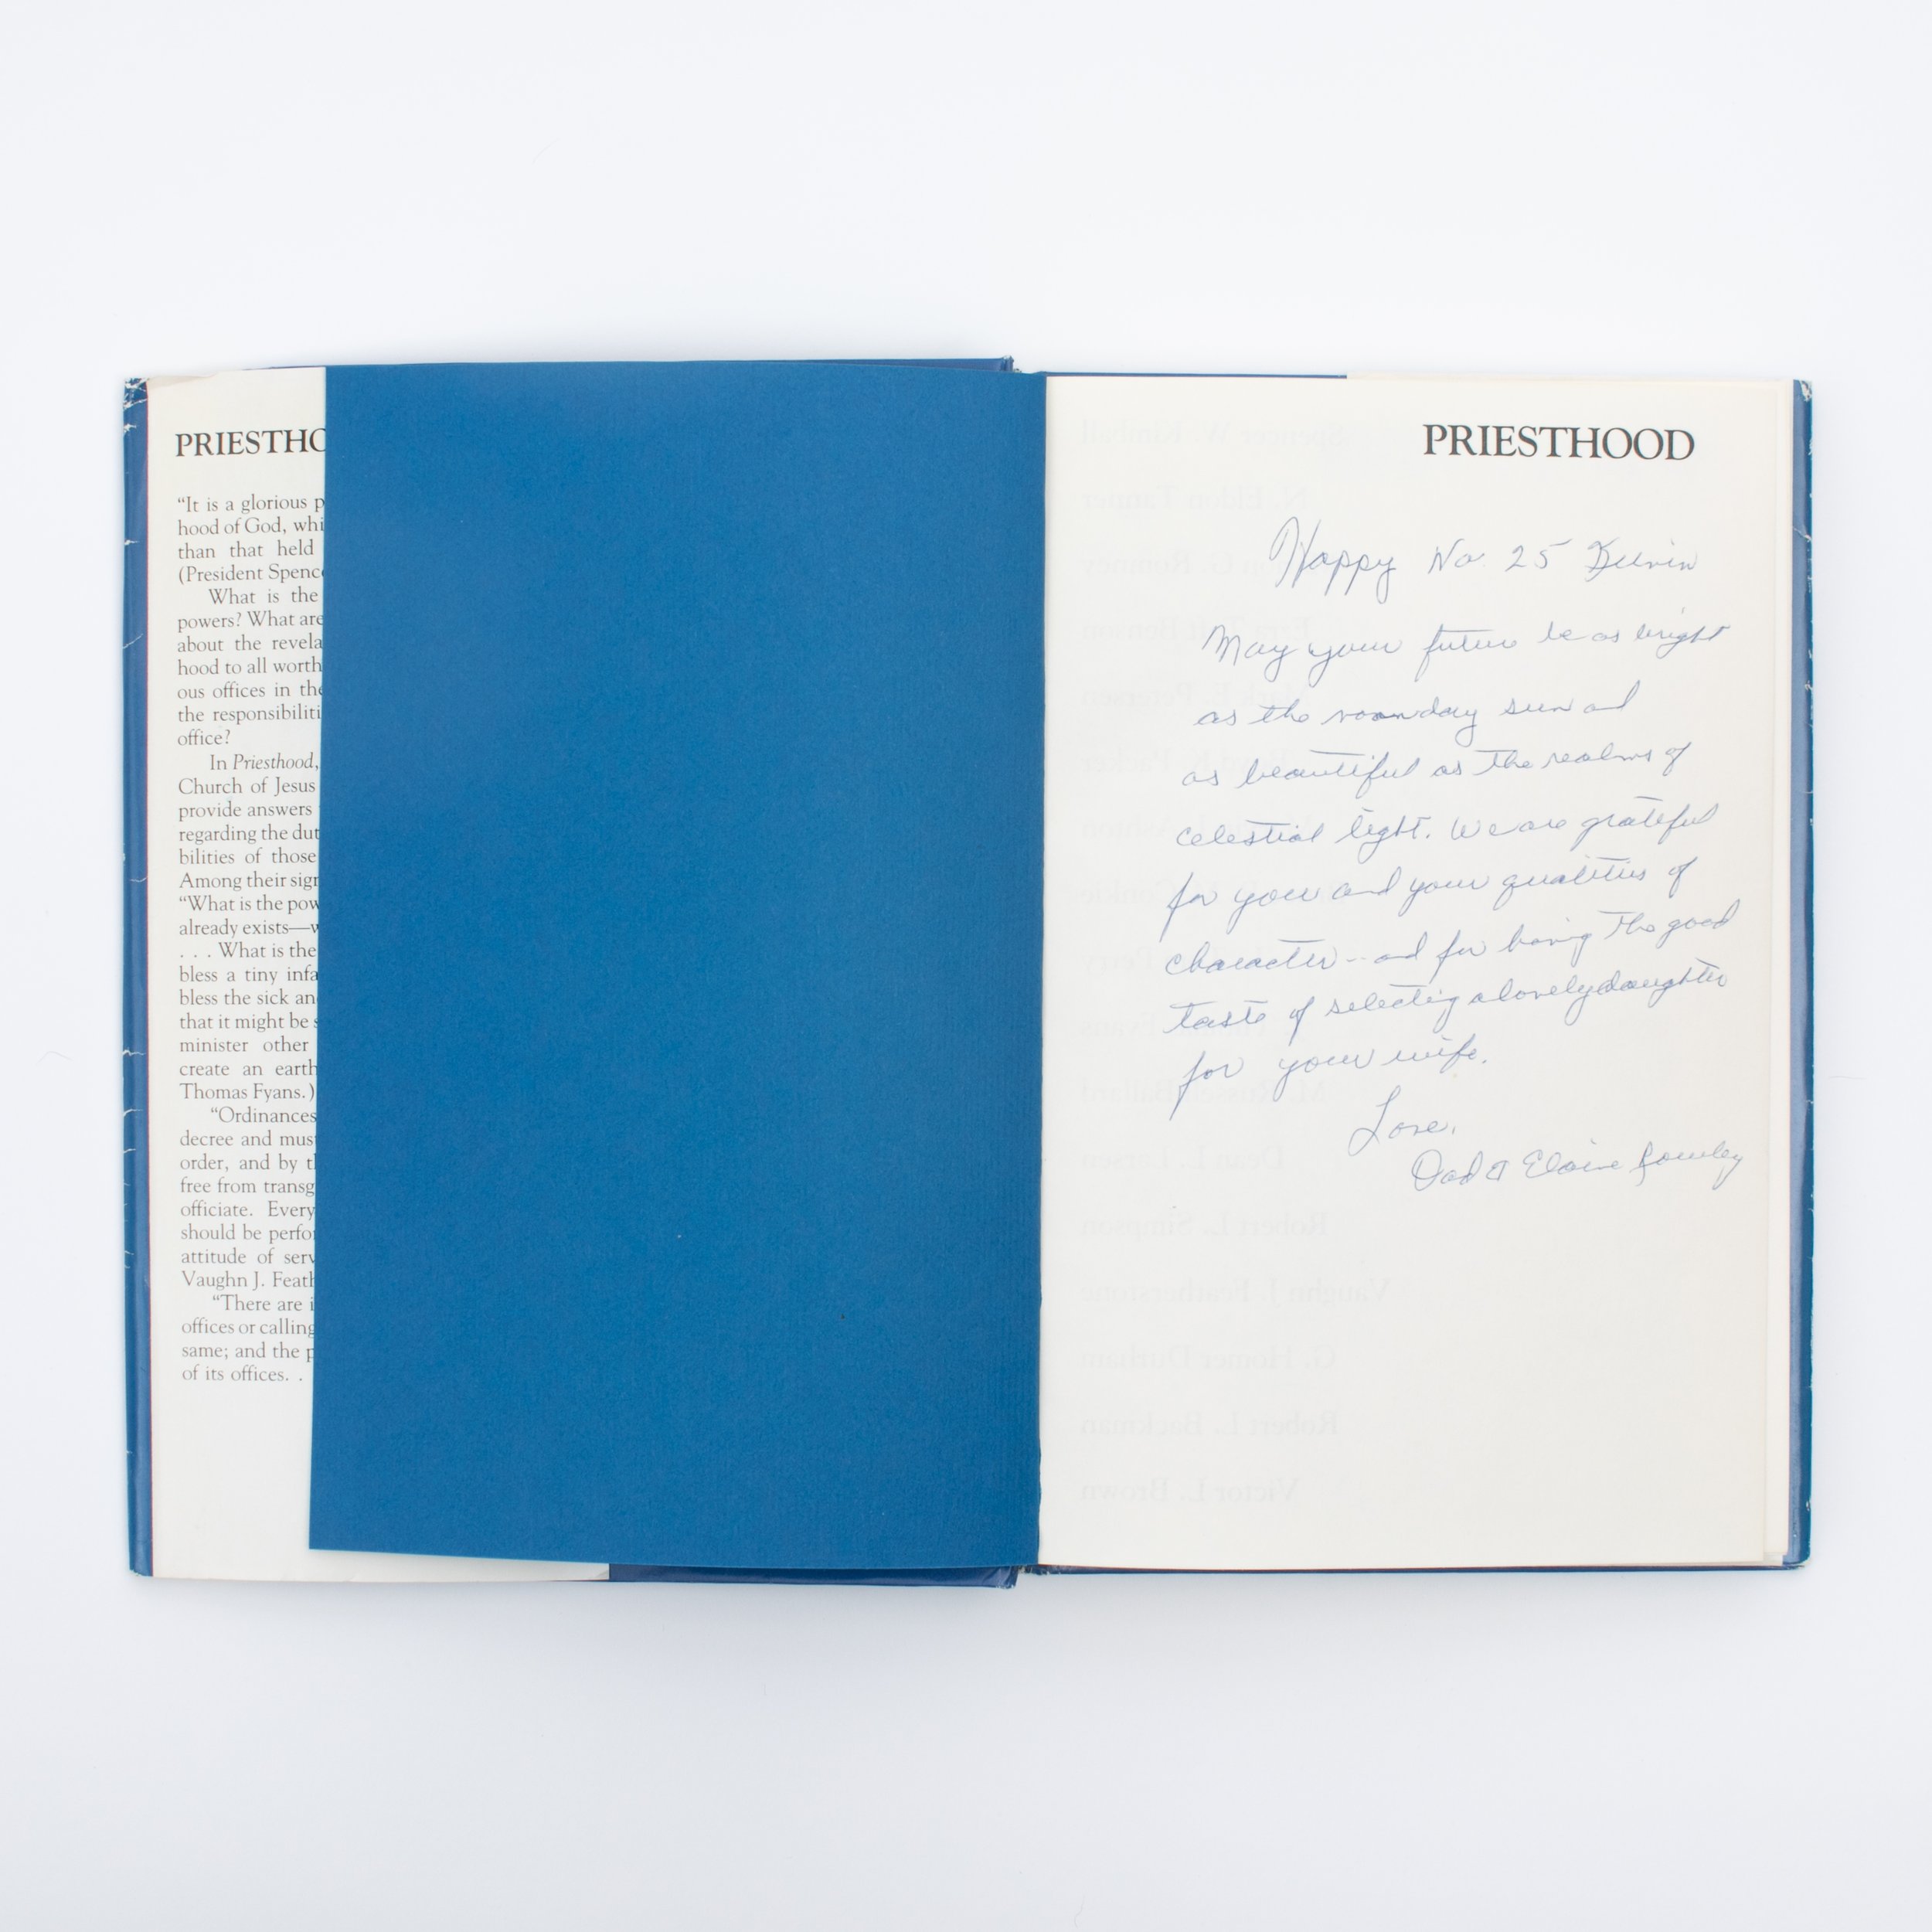 PRIESTHO
“It is a glorious p
hood of God, whi
than that held
(President Spence
What is the
powers? What are
about the revela
hood to all worth
ous offices in the
the responsibiliti
office?
In Priesthood,
Church of Jesus
provide answers
regarding the dut
bilities of those
Among their sign
“What is the pow
already exists—w
. . . What is the
bless a tiny infa
bless the sick an
that it might be s
minister other
create an earth
Thomas Fyans.)
“Ordinances
decree and mus
order, and by th
free from transg
officiate. Every
should be perfo
attitude of serv
Vaughn J. Feath
“There are i
offices or calling
same; and the p
of its offices. .
PRIESTHOOD
Happy No. 25
May your future be as bright
as the noonday sun and
as beautiful as the realms of
celestial light. We are grateful
for you and your qualities of
character -- and for having the good
taste of selecting a lovely daughter
for your wife.
Love,
Dad & Elaine
Spencer W. Kimball
N. Eldon Tanner
G. Romney
Benson
Mark E. Petersen
Boyd K. Packer
Ashton
Perry
Evans
M. Russell Ballard
Dean L. Larsen
Robert L. Simpson
Vaughn J. Featherstone
G. Homer Durham
Robert L. Backman
Victor L. Brown